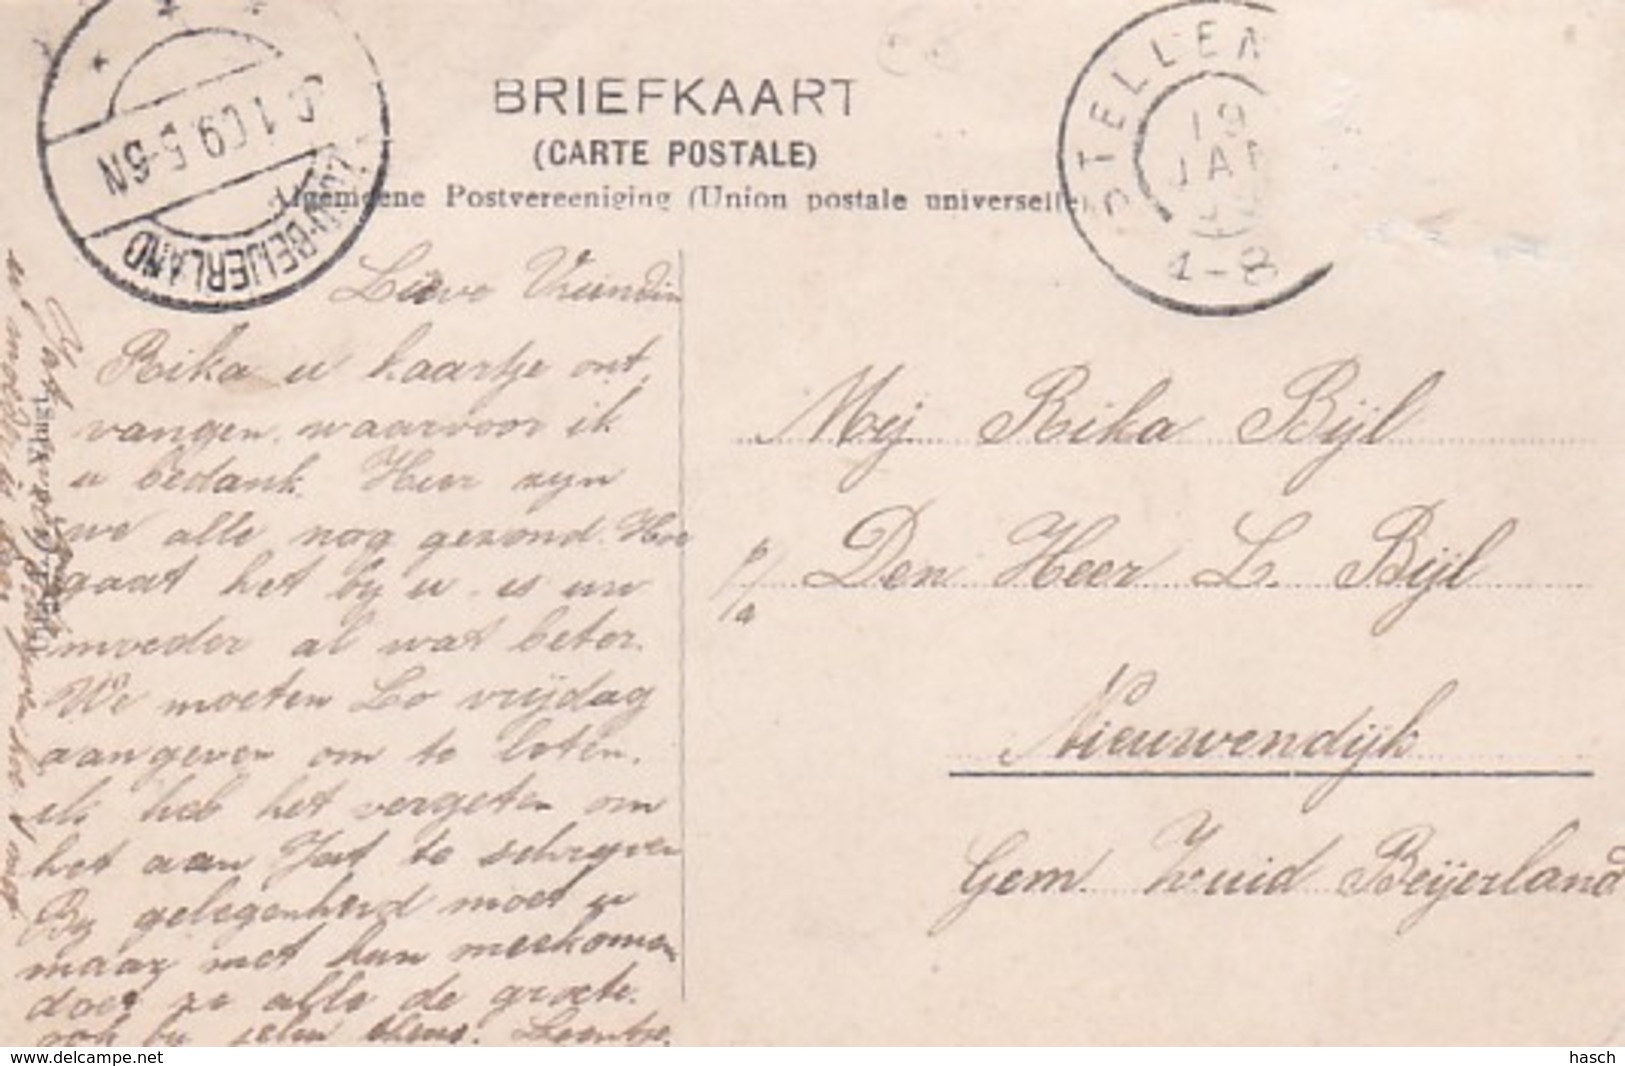 BRIEFKAART
(CARTE POSTALE)
Algemeene Postvereeniging (Union postale universelle)
STELLEN
19
JAN
4-8
1 09 5-6N
ZUID-BEIJERLAND
Lieve Vriendin
Rika u kaartje ont
vangen. waarvoor ik
u bedank. Hier zyn
we alle nog gezond. Hoe
gaat het by u. is uw
moeder al wat beter.
We moeten Lo vrijdag
aangeven om te loten.
ik heb het vergeten om
het aan Jat te schryven
By gelegenheid moet u
maar met hun meekomen
doet ze alle de groete.
ook by
Leentje.
Jat
moeder is
Mej Rika Bijl
p/a Den Heer L. Bijl
Nieuwendijk
Gem. Zuid Beijerland
www.delcampe.net
hasch